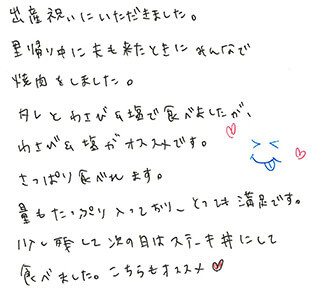 出産祝いにいただきました。
里帰り中に夫も来たときにみんなで
焼肉をしました。
タレとわさび&塩で食べましたが、
わさび&塩がオススメです。
さっぱり食べれます。
量もたっぷり入っており、とっても満足です。
少し残して次の日はステーキ丼にして
食べました。こちらもオススメ